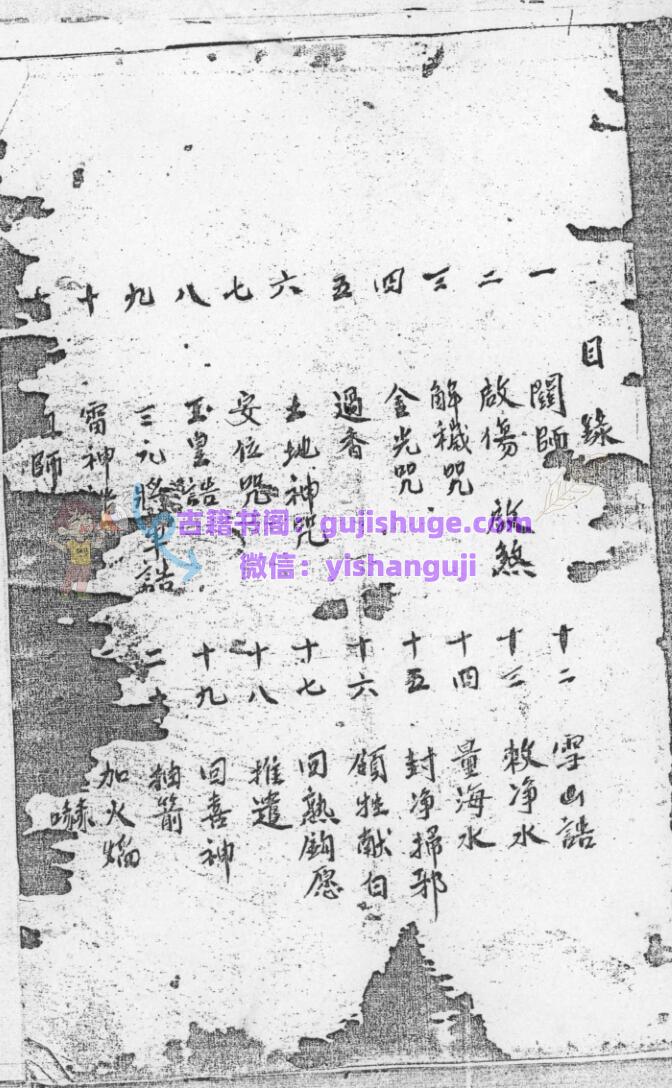 目錄
一 關師
二 啟傷 放煞
三 解穢咒
四 金光咒
五 過香
六 土地神咒
七 安位咒
八 玉皇誥
九 三元將軍誥
十 雷神
師
十二 雪山誥
十三 敕净水
十四 量海水
十五 封净掃邪
十六 領牲献白
十七 回熟鈎愿
十八 推遣
十九 回喜神
二十 抽箭
加火焰
嚇
古籍书阁:gujishuge.com
微信:yishanguji